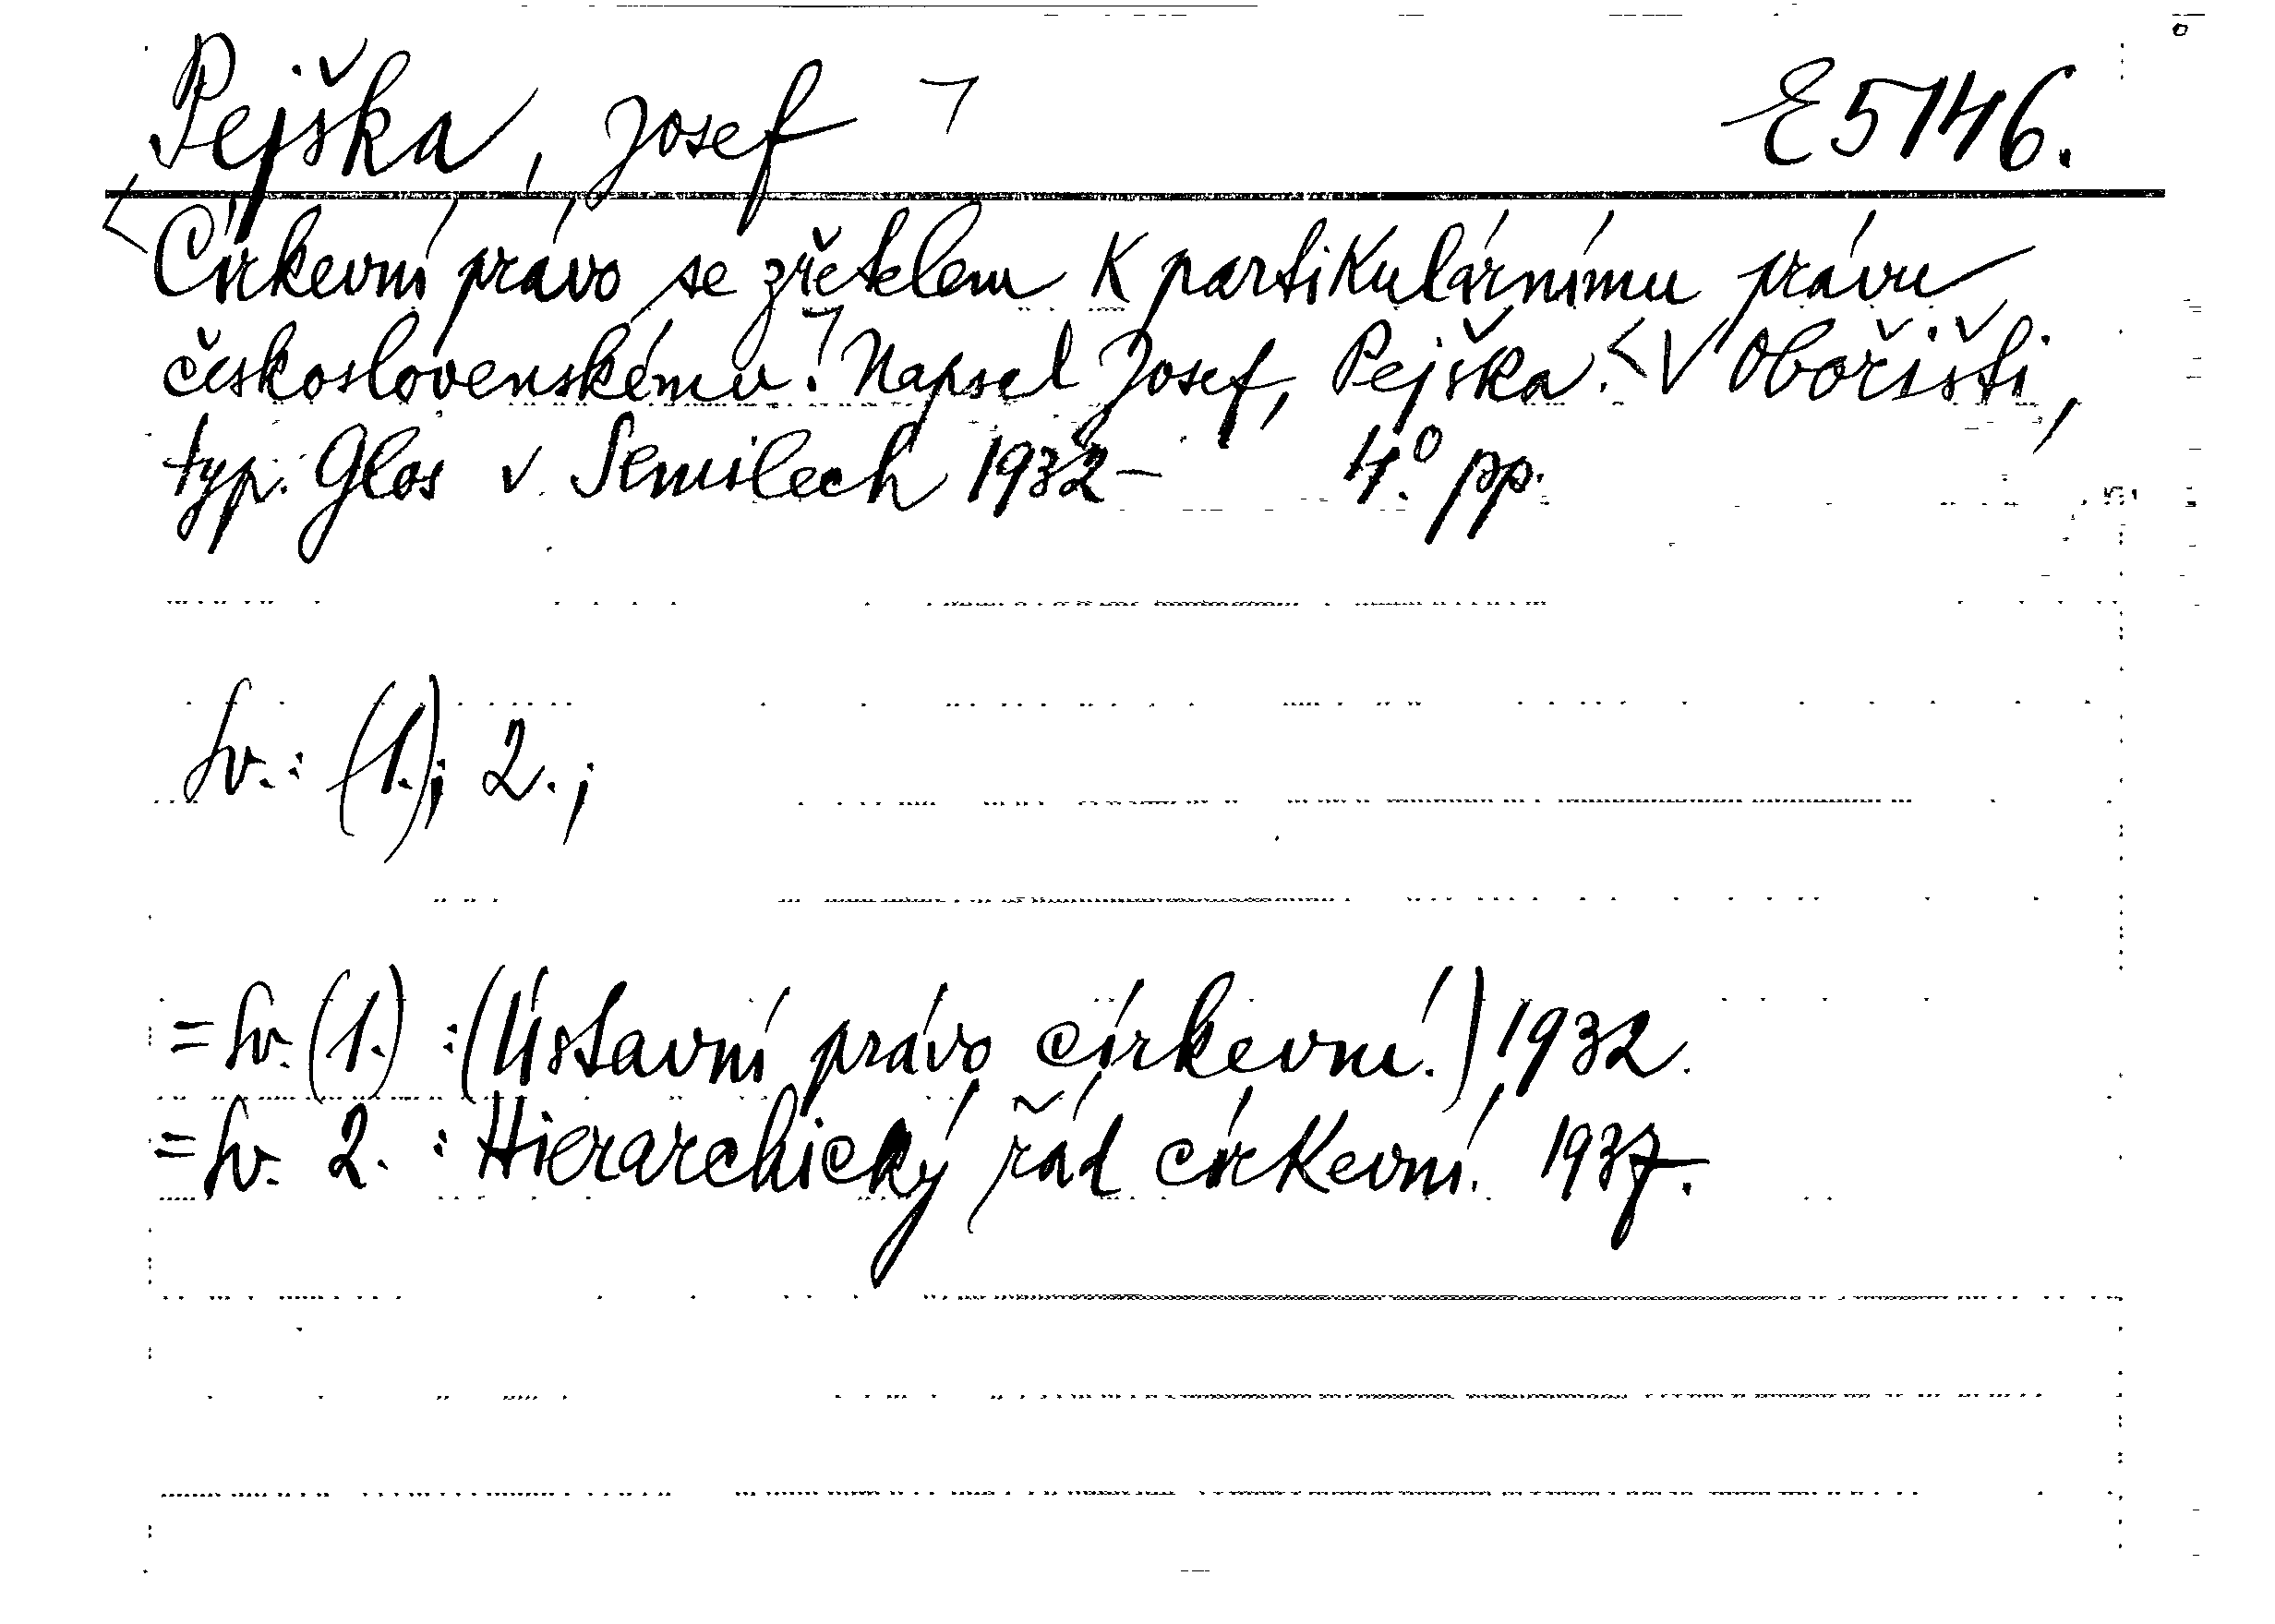 Pejška, Josef ㄱ E 5146.
<Církevní právo se zřetelem k partikulárnímu právu
československému.ㄱ Napsal Josef Pejška. <V Obořišti,
typ. Glos v Semilech 1932- 4.° pp.
Sv.: (1.); 2.;
= Sv. (1.) : (Ústavní právo církevní.) 1932.
= Sv. 2. : Hierarchický řád církevní. 1937.